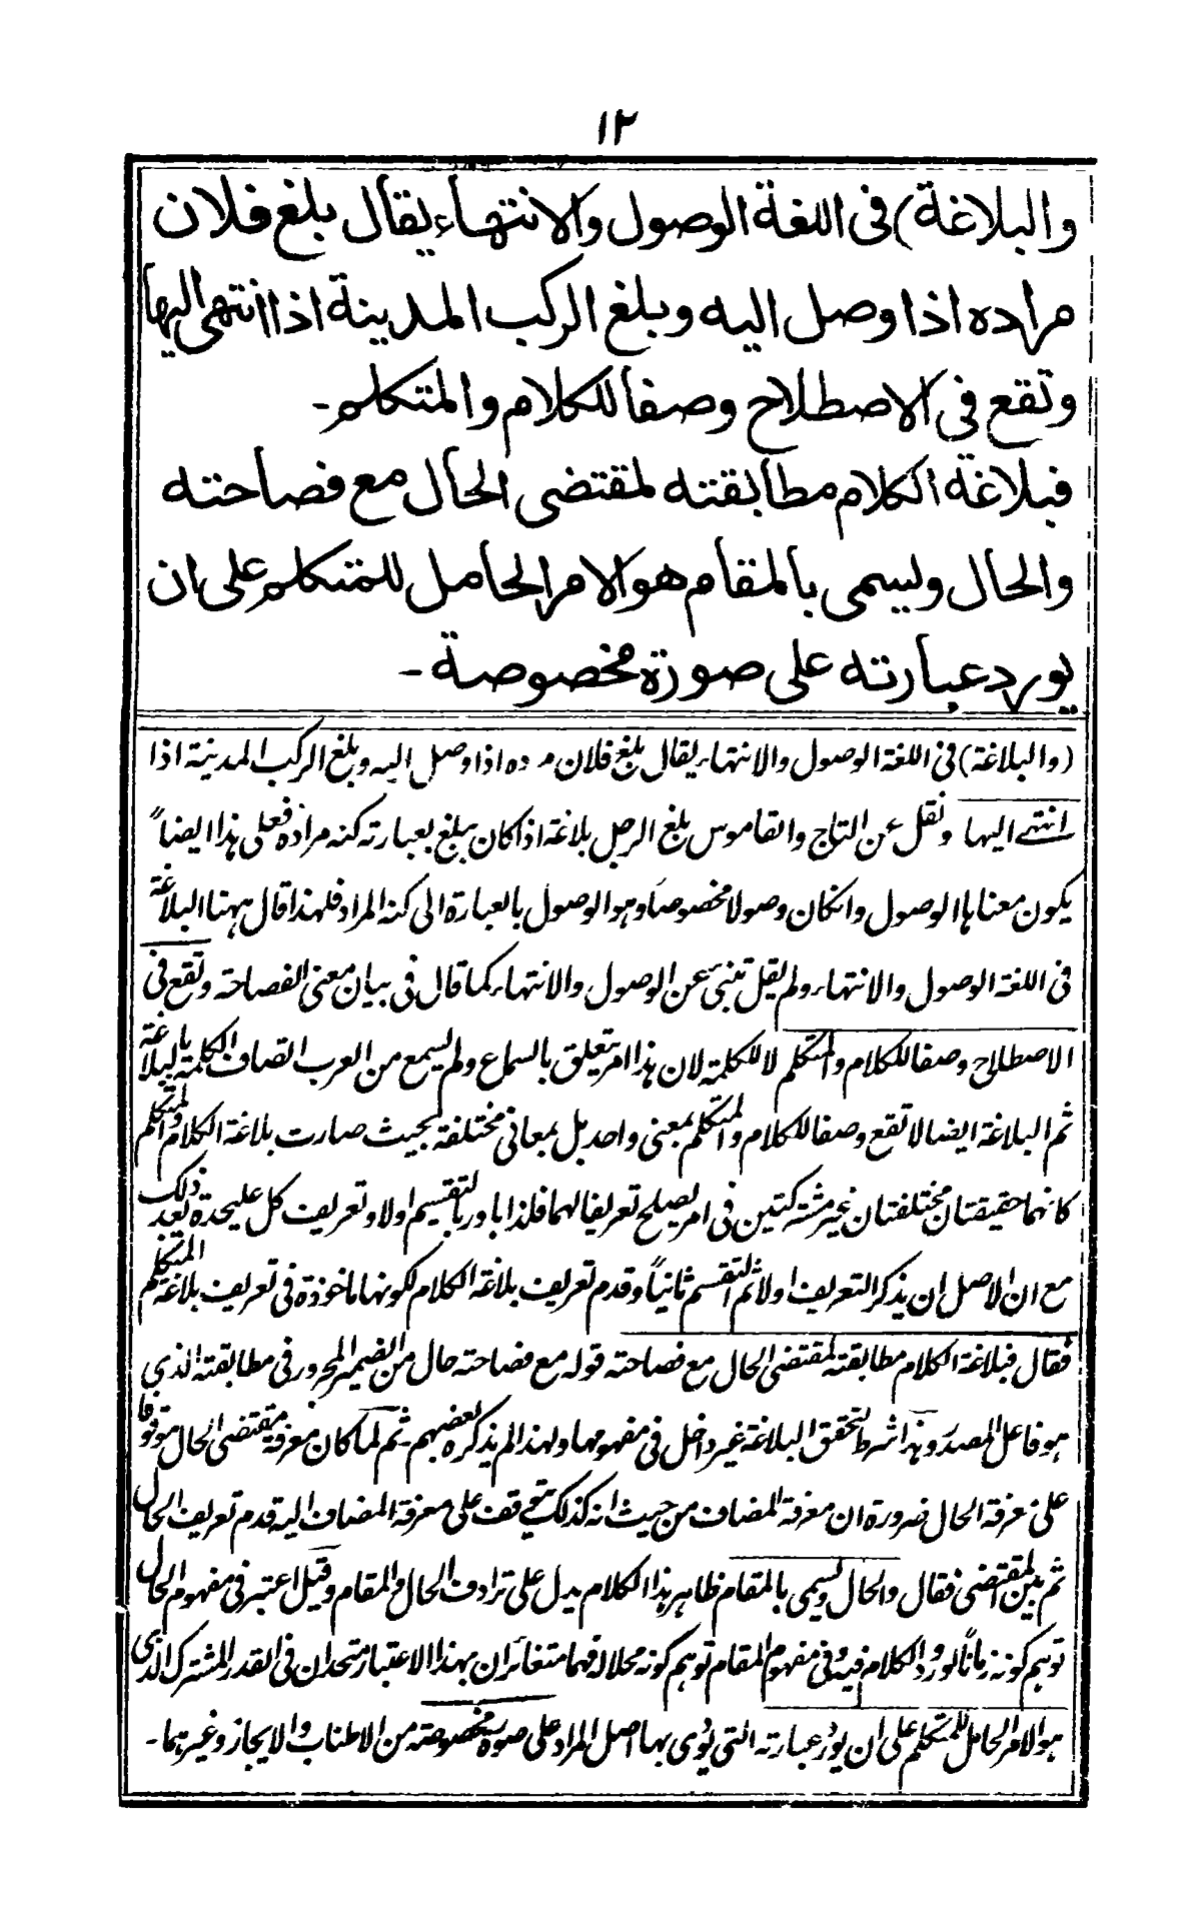 ١٢
والبلاغة) فى اللغة الوصول والانتهاء يقال بلغ فلان
مراده اذا وصل اليه وبلغ الركب المدينة اذا انتهى اليها
وتقع فى الاصطلاح وصفا للكلام والمتكلم۔
فبلاغة الكلام مطابقته لمقتضى الحال مع فصاحته
والحال ويسمى بالمقام هو الامر الحامل للمتكلم على ان
يورد عبارته على صورة مخصوصة۔
(والبلاغة) فى اللغة الوصول والانتهاء يقال بلغ فلان مر ده اذا وصل اليه وبلغ الركب المدينة اذا
انتهى اليها ونقل عن التاج والقاموس بلغ الرجل بلاغة اذا كان يبلغ بعبارته كنه مراده فعلى هذا ايضاً
يكون معناها الوصول وانكان وصولا مخصوصا وهو الوصول بالعبارة الى كنه المراد فلهذا قال ههنا البلاغة
فى اللغة الوصول والانتهاء ولم يقل تنبئ عن الوصول والانتهاء كما قال فى بيان معنى الفصاحة وتقع فى
الاصطلاح وصفا للكلام والمتكلم لا للكلمة لان هذا امر يتعلق بالسماع ولم يسمع من العرب اتصاف الكلمة بالبلاغة
ثم البلاغة ايضا لا تقع وصفا للكلام والمتكلم بمعنى واحد بل بمعانى مختلفة بحيث صارت بلاغة الكلام والمتكلم
كانهما حقيقتان مختلفتان غير مشتركتين فى امر يصلح تعريفا لهما فلذا بادر بالتقسيم اولا وتعريف كل عليحدة بعد ذلك
مع ان الاصل ان يذكر التعريف اولا ثم التقسيم ثانياً وقدم تعريف بلاغة الكلام لكونها ماخوذة فى تعريف بلاغة المتكلم
فقال فبلاغة الكلام مطابقته لمقتضى الحال مع فصاحته قوله مع فصاحته حال من الضمير المجرور فى مطابقته الذى
هو فاعل المصدر وهذا شرط لتحقق البلاغة غير داخل فى مفهومها ولهذا لم يذكره بعضهم ثم لما كان معرفة مقتضى الحال موقوفا
على معرفة الحال ضرورة ان معرفة المضاف من حيث انه كذلك يتوقف على معرفة المضاف اليه قدم تعريف الحال
ثم بين المقتضى فقال والحال ويسمى بالمقام ظاهر هذا الكلام يدل على ترادف الحال والمقام وقيل اعتبر فى مفهوم الحال
توهم كونه زماناً لورود الكلام فيه وفى مفهوم المقام توهم كونه محلا له فهما متغائران بهذا الاعتبار متحدان فى القدر المشترك الذى
هو الامر الحامل للمتكلم على ان يورد عبارته التى يؤدى بها اصل المراد على صورة مخصوصة من الاطناب والايجاز وغيرهما۔